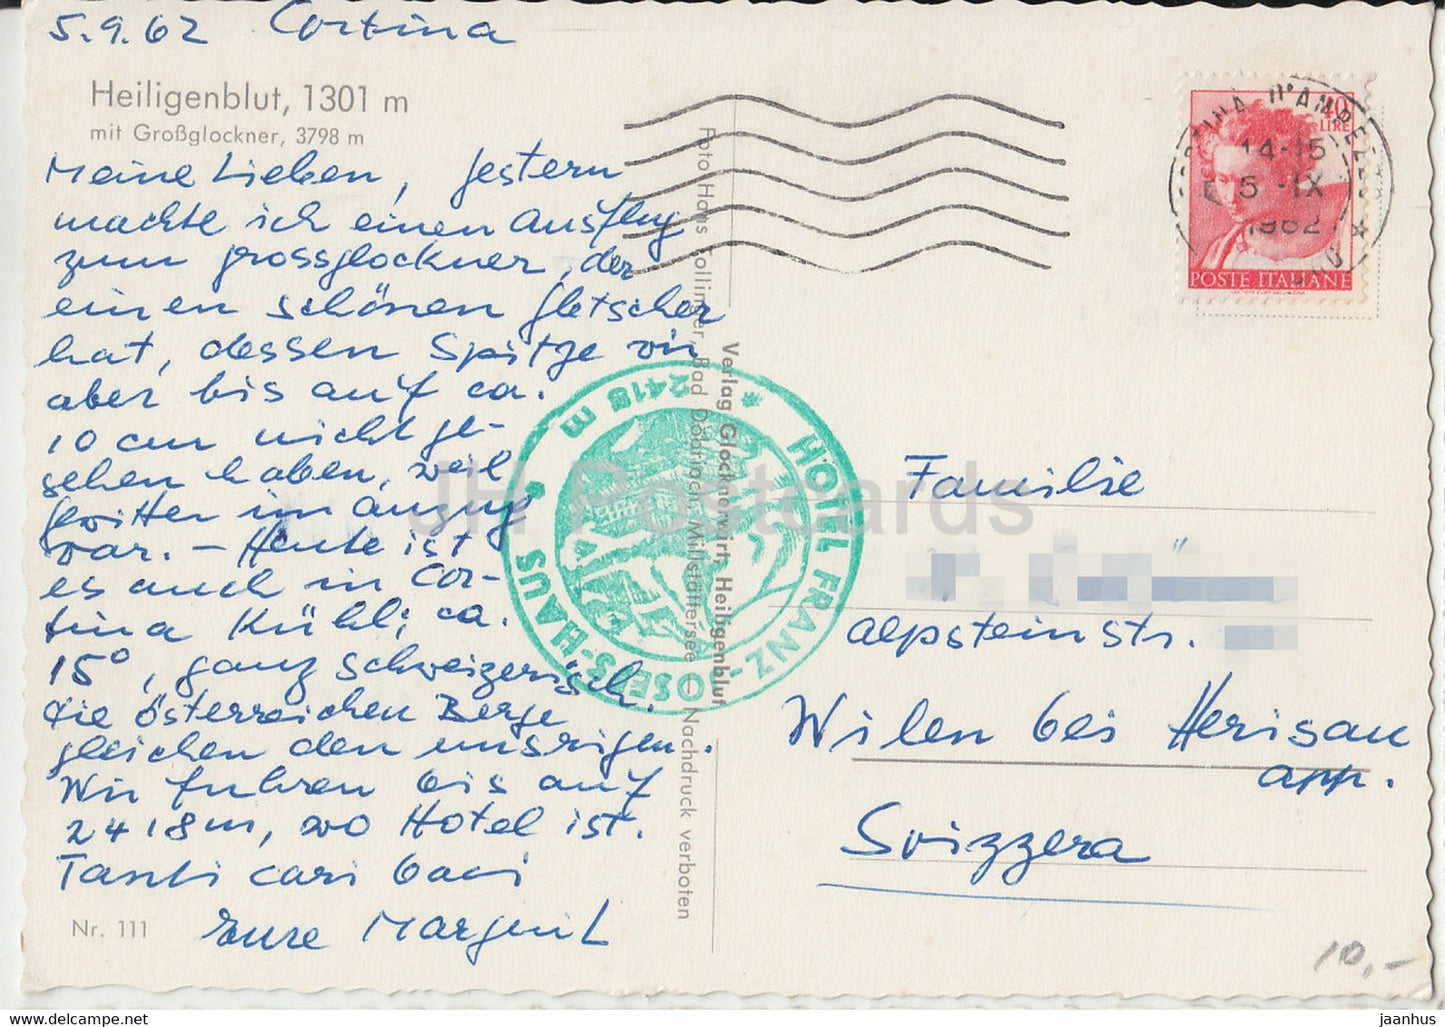 5.9.62 Cortina
Heiligenblut, 1301 m
mit Großglockner, 3798 m
Meine Lieben, gestern
machte ich einen Ausflug
zum grossglockner, der
einen schönen gletscher
hat, dessen Spitze wir
aber bis auf ca.
10 cm nicht ge-
sehen haben, weil
gewitter im anzug
war. – Heute ist
es auch in Cor-
tina Kühl; ca.
15°, ganz schweizerisch.
die österreichen Berge
gleichen den unsrigen.
Wir fuhren bis auf
2418m, wo Hotel ist.
Tanti cari baci
Eure Margrit
Nr. 111
Foto Hans Lollinger, Bad Döbriach, Millstättersee – Nachdruck verboten
Verlag Glocknerwirt, Heiligenblut
HOTEL FRANZ-JOSEFS-HAUS * 2418 m *
40
LIRE
POSTE ITALIANE
CORTINA D'AMPEZZO *
14-15
5 -IX
1962
Familie
alpsteinstr.
Wilen bei Herisau
app.
Svizzera
10,-
JH Postcards
jaanhus.com